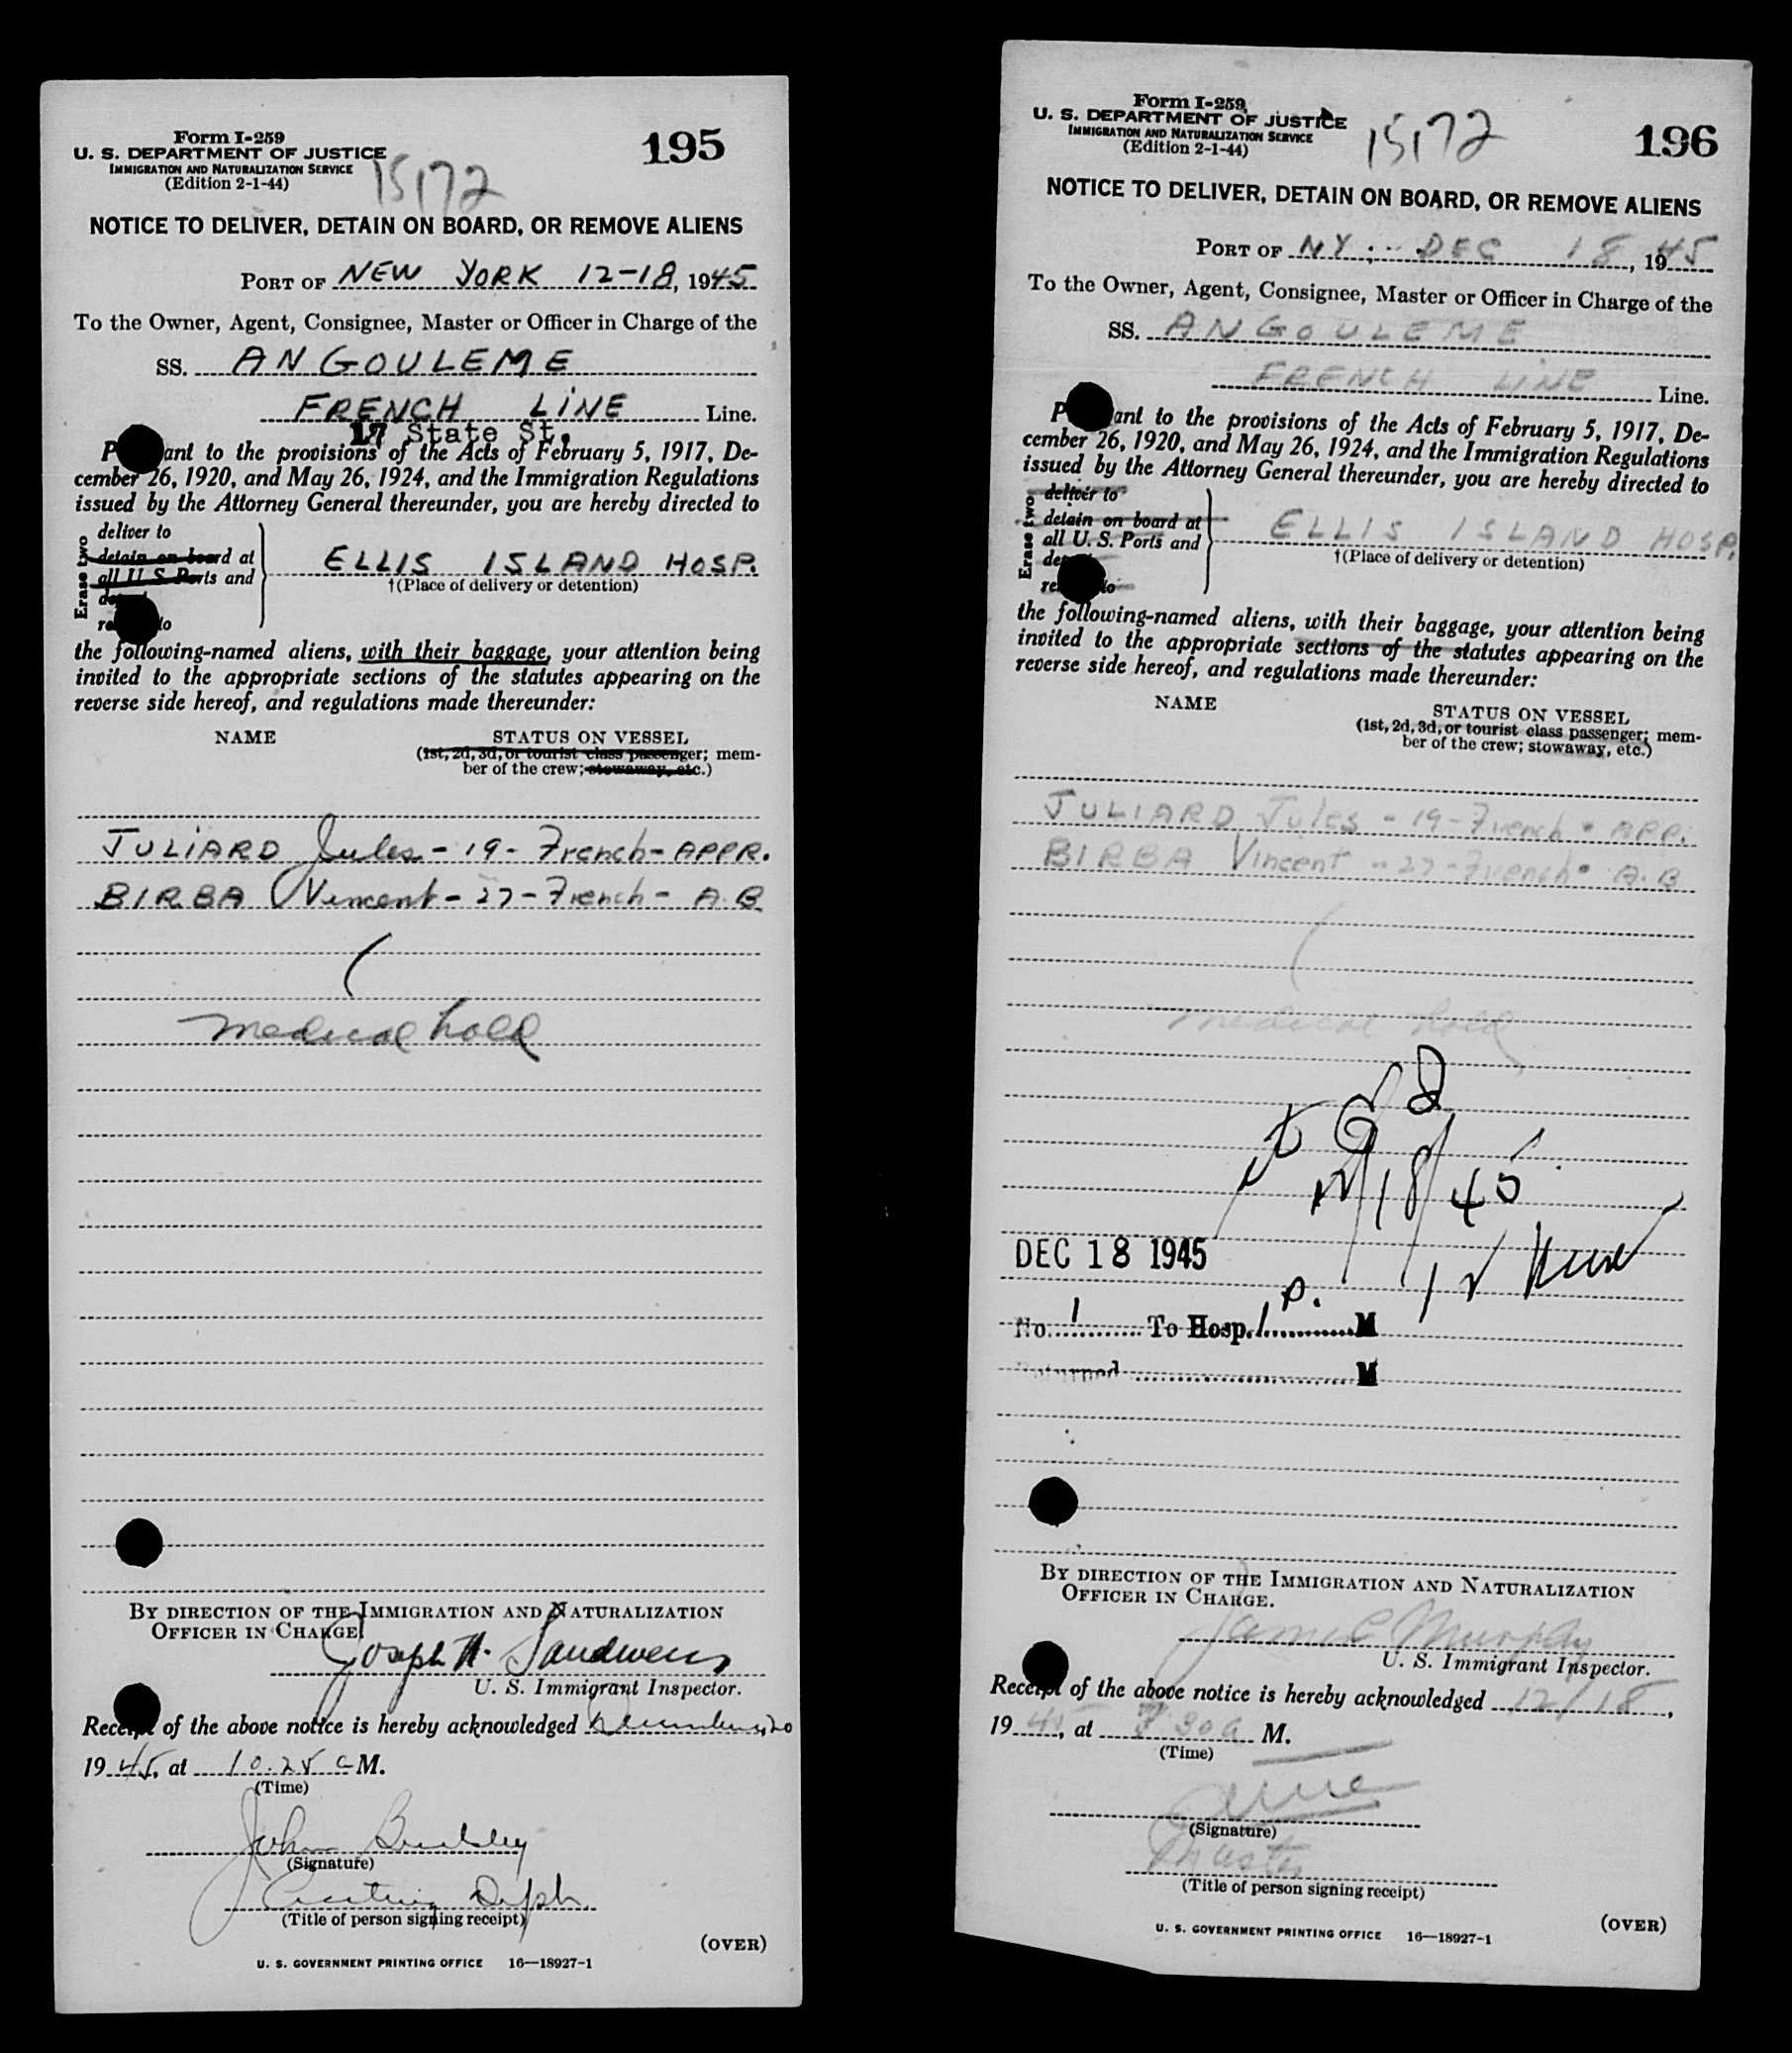 Form I-259
U. S. DEPARTMENT OF JUSTICE
IMMIGRATION AND NATURALIZATION SERVICE
(Edition 2-1-44)
15172
195
NOTICE TO DELIVER, DETAIN ON BOARD, OR REMOVE ALIENS
PORT OF NEW YORK 12-18, 1945
To the Owner, Agent, Consignee, Master or Officer in Charge of the
SS. ANGOULEME
FRENCH LINE Line.
17 State St.
P ant to the provisions of the Acts of February 5, 1917, De-
cember 26, 1920, and May 26, 1924, and the Immigration Regulations
issued by the Attorney General thereunder, you are hereby directed to
Erase two
deliver to
detain on board at
all U. S. Ports and
to
ELLIS ISLAND HOSP.
†(Place of delivery or detention)
the following-named aliens, with their baggage, your attention being
invited to the appropriate sections of the statutes appearing on the
reverse side hereof, and regulations made thereunder:
NAME
STATUS ON VESSEL
(1st, 2d, 3d, or tourist class passenger; mem-
ber of the crew; stowaway, etc.)
JULIARD Jules - 19 - French - APPR.
BIRBA Vincent - 27 - French - A.B.
medical hold
BY DIRECTION OF THE IMMIGRATION AND NATURALIZATION
OFFICER IN CHARGE
Joseph H.
U. S. Immigrant Inspector.
Receipt of the above notice is hereby acknowledged
1945, at 10.25 a M.
(Time)
John
(Signature)
(Title of person signing receipt)
(OVER)
U. S. GOVERNMENT PRINTING OFFICE 16—18927-1
Form I-259
U. S. DEPARTMENT OF JUSTICE
IMMIGRATION AND NATURALIZATION SERVICE
(Edition 2-1-44)
15172
196
NOTICE TO DELIVER, DETAIN ON BOARD, OR REMOVE ALIENS
PORT OF NY; DEC 18, 1945
To the Owner, Agent, Consignee, Master or Officer in Charge of the
SS. ANGOULEME
FRENCH LINE Line.
P ant to the provisions of the Acts of February 5, 1917, De-
cember 26, 1920, and May 26, 1924, and the Immigration Regulations
issued by the Attorney General thereunder, you are hereby directed to
Erase two
deliver to
detain on board at
all U. S. Ports and
to
ELLIS ISLAND HOSP.
†(Place of delivery or detention)
the following-named aliens, with their baggage, your attention being
invited to the appropriate sections of the statutes appearing on the
reverse side hereof, and regulations made thereunder:
NAME
STATUS ON VESSEL
(1st, 2d, 3d, or tourist class passenger; mem-
ber of the crew; stowaway, etc.)
JULIARD Jules - 19 - French - APPR.
BIRBA Vincent - 27 - French - A.B
medical hold
12/18/45
DEC 18 1945
No. 1 To Hosp. 1 P. M
Returned M
BY DIRECTION OF THE IMMIGRATION AND NATURALIZATION
OFFICER IN CHARGE.
James C Murphy
U. S. Immigrant Inspector.
Receipt of the above notice is hereby acknowledged 12/18,
1945, at 30 a M.
(Time)
(Signature)
Master
(Title of person signing receipt)
(OVER)
U. S. GOVERNMENT PRINTING OFFICE 16—18927-1